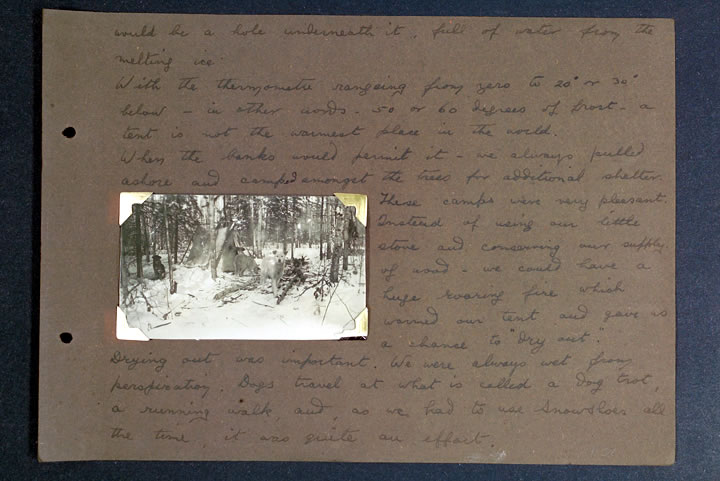 would be a hole underneath it, full of water from the
melting ice
With the thermometre rangeing from zero to 20° or 30°
below - in other words - 50 or 60 degrees of frost - a
tent is not the warmest place in the world.
When the banks would permit it - we always pulled
ashore and camped amongst the trees for additional shelter.
These camps were very pleasant.
Instead of using our little
stove and conserving our supply
of wood - we could have a
huge roaring fire which
warmed our tent and gave us
a chance to "dry out."
Drying out was important. We were always wet from
perspiration. Dogs travel at what is called a dog trot,
a running walk, and, as we had to use snowshoes all
the time, it was quite an effort.